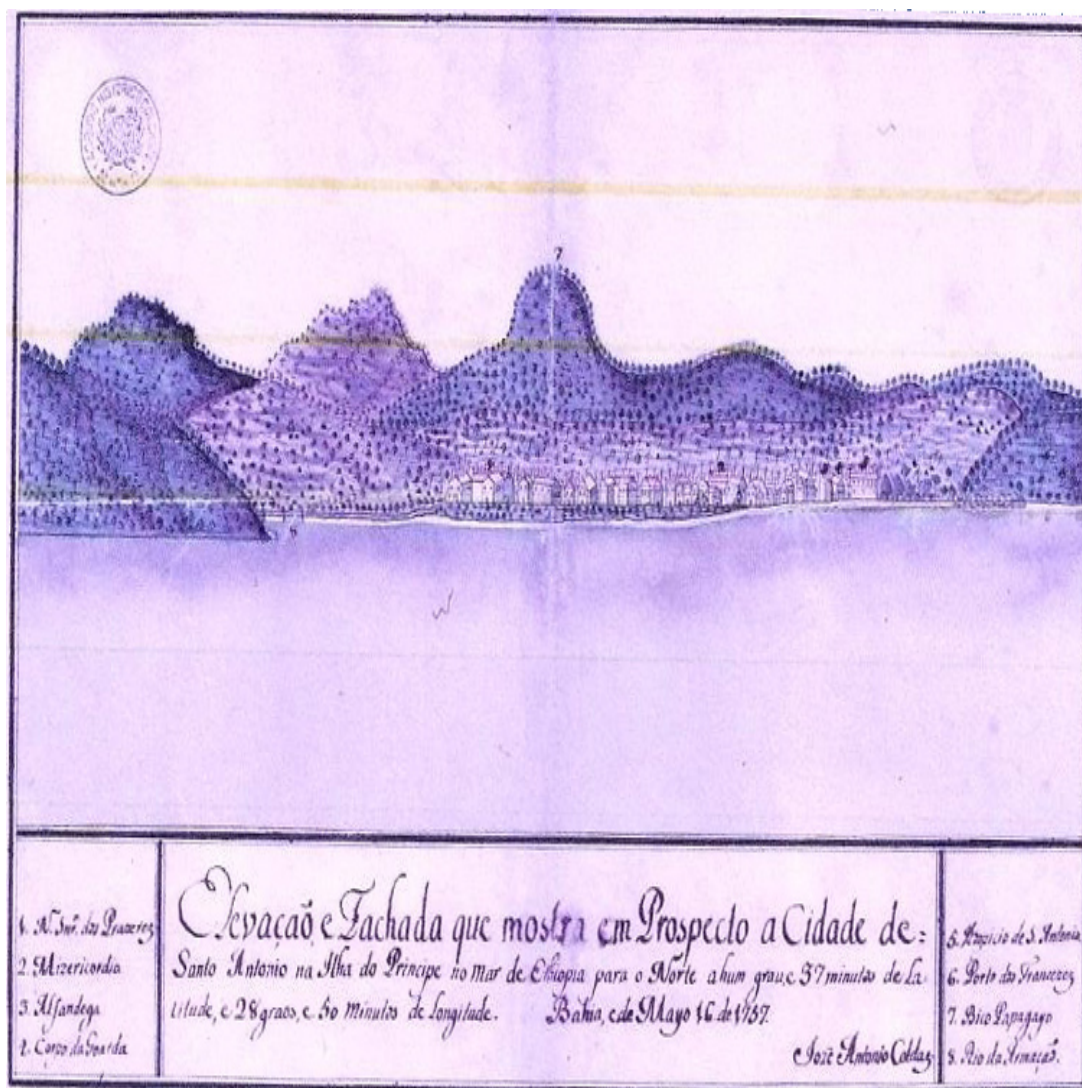 7
1. N. Snr.ª dos Prazerez
2. Mizericordia
3. Alfandega
4. Corpo da Goarda
Elevação e Fachada que mostra em Prospecto a Cidade de=
Santo Antonio na Ilha do Principe no mar de Ethiopia para o Norte a hum grau, e 37 minutos de La-
titude, e 28 graos, e 50 minutos de Longitude. Bahia, e de Mayo 16 de 1757.
Jozè Antonio Caldas
5. Hospicio de S. Antonio
6. Porto dos Francezez
7. Bico Papagayo
8. Rio da Armaçaõ.